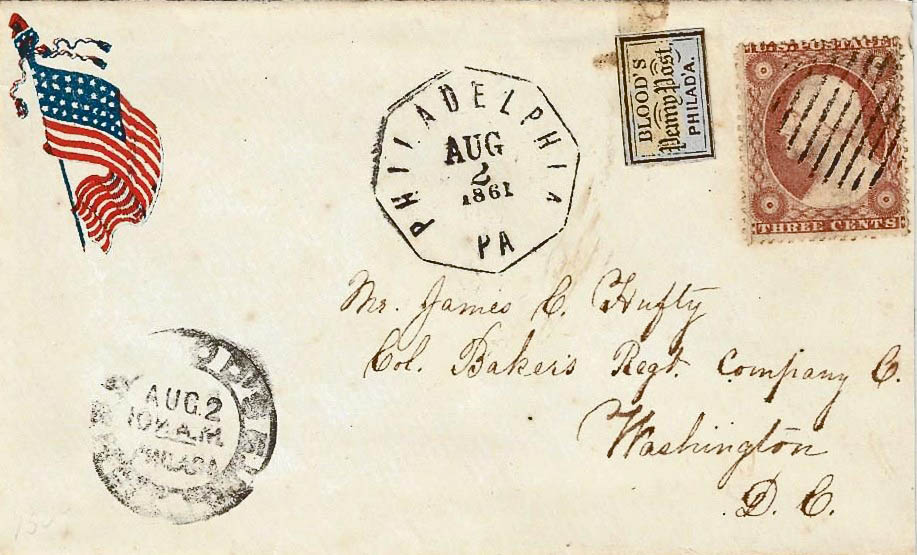 BLOOD'S
Penny Post.
PHILAD'A.
U.S. POSTAGE
THREE CENTS
PHILADELPHIA
AUG
2
1861
PA
Mr. James C. Hufty
Col. Baker's Regt. Company C.
Washington
D. C.
AUG. 2
10½ A.M.
PHILADA